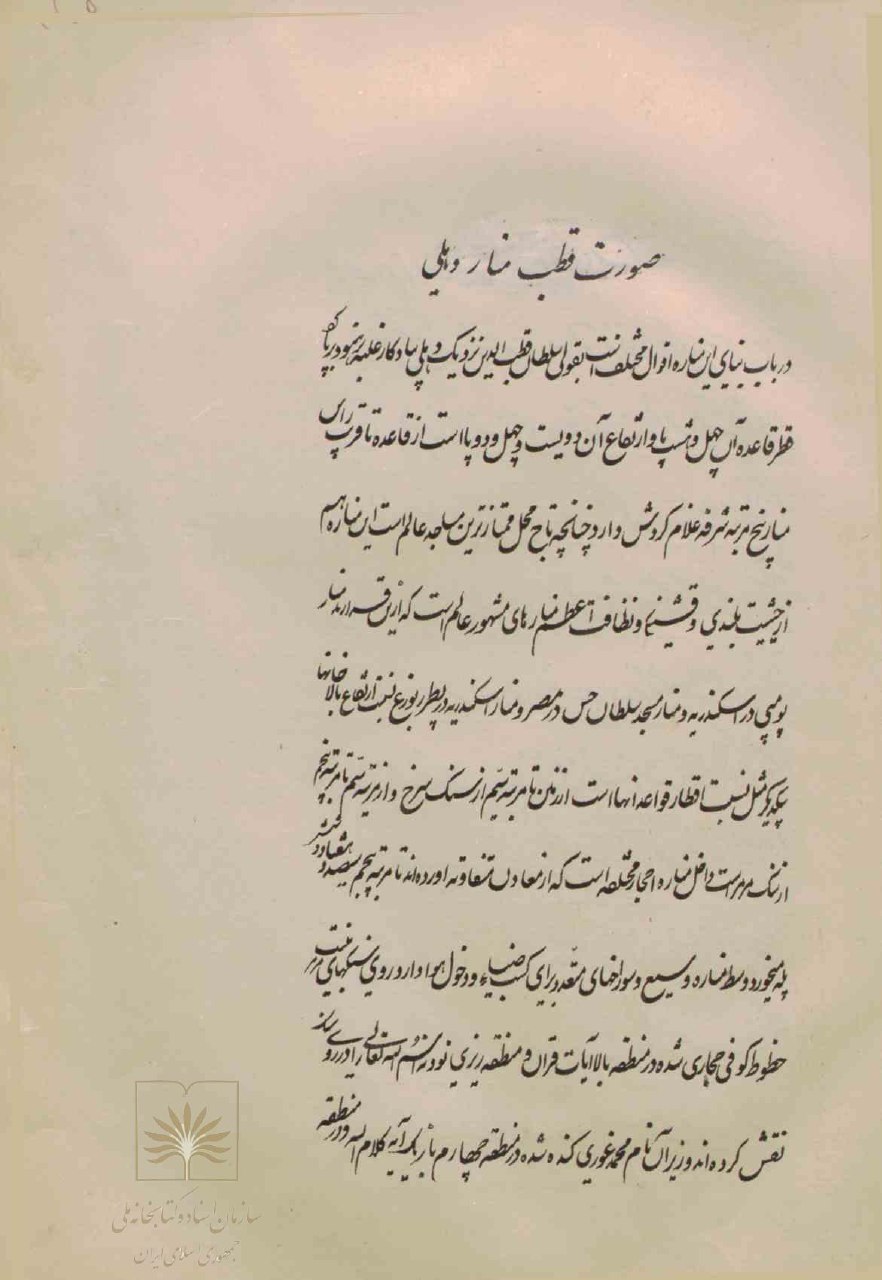 صورت قطب منار دهلی
در باب بنیای این مناره اقوال مختلف است بقولی سلطان قطب الدین نزدیک دهلی بیادکار غلبه بر هنود برپا کرد
قطر قاعده آن چهل و شب پا و ارتفاع آن دویست و چهل و دو پا است از قاعده تا قرب راس
منار پنج مرتبه شرفه غلام کردش دارد چنانچه تاج محل ممتازترین مساجد عالم است این مناره هم
از حیثیت بلندی و قشنگی و نظافت اعظم منارهای مشهور عالم است که ازین قرارند منار
پومپی در اسکندریه و منار مسجد سلطان حسن در مصر و منار اسکندریه در پطربورغ نسبت ارتفاع بالاخانها
بیکدیگر مثل نسبت اقطار قواعد انها است از زمین تا مرتبه سیم از سنک سرخ و از مرتبه سیم تا مرتبه پنجم
از سنک مرمر است داخل مناره احجار مختلفه است که از معادن متفاوته اورده اند تا مرتبه پنجم سیصد و هفتاد و شش
پله میخورد وسط مناره وسیع و سوراخهای متعدد برای کسب ضیاء و دخول هوا دارد روی سنکهای مرمر
خطوط کوفی حجاری شده در منطقه بالا آیات قران و منطقه زیری نود نه اسم الله تعالی را در روی
نقش کرده اند و زیر آن نام محمد غوری کنده شده در منطقه چهارم باز یک آیه کلام الله و در منطقه
سازمان اسناد و کتابخانه ملی
جمهوری اسلامی ایران